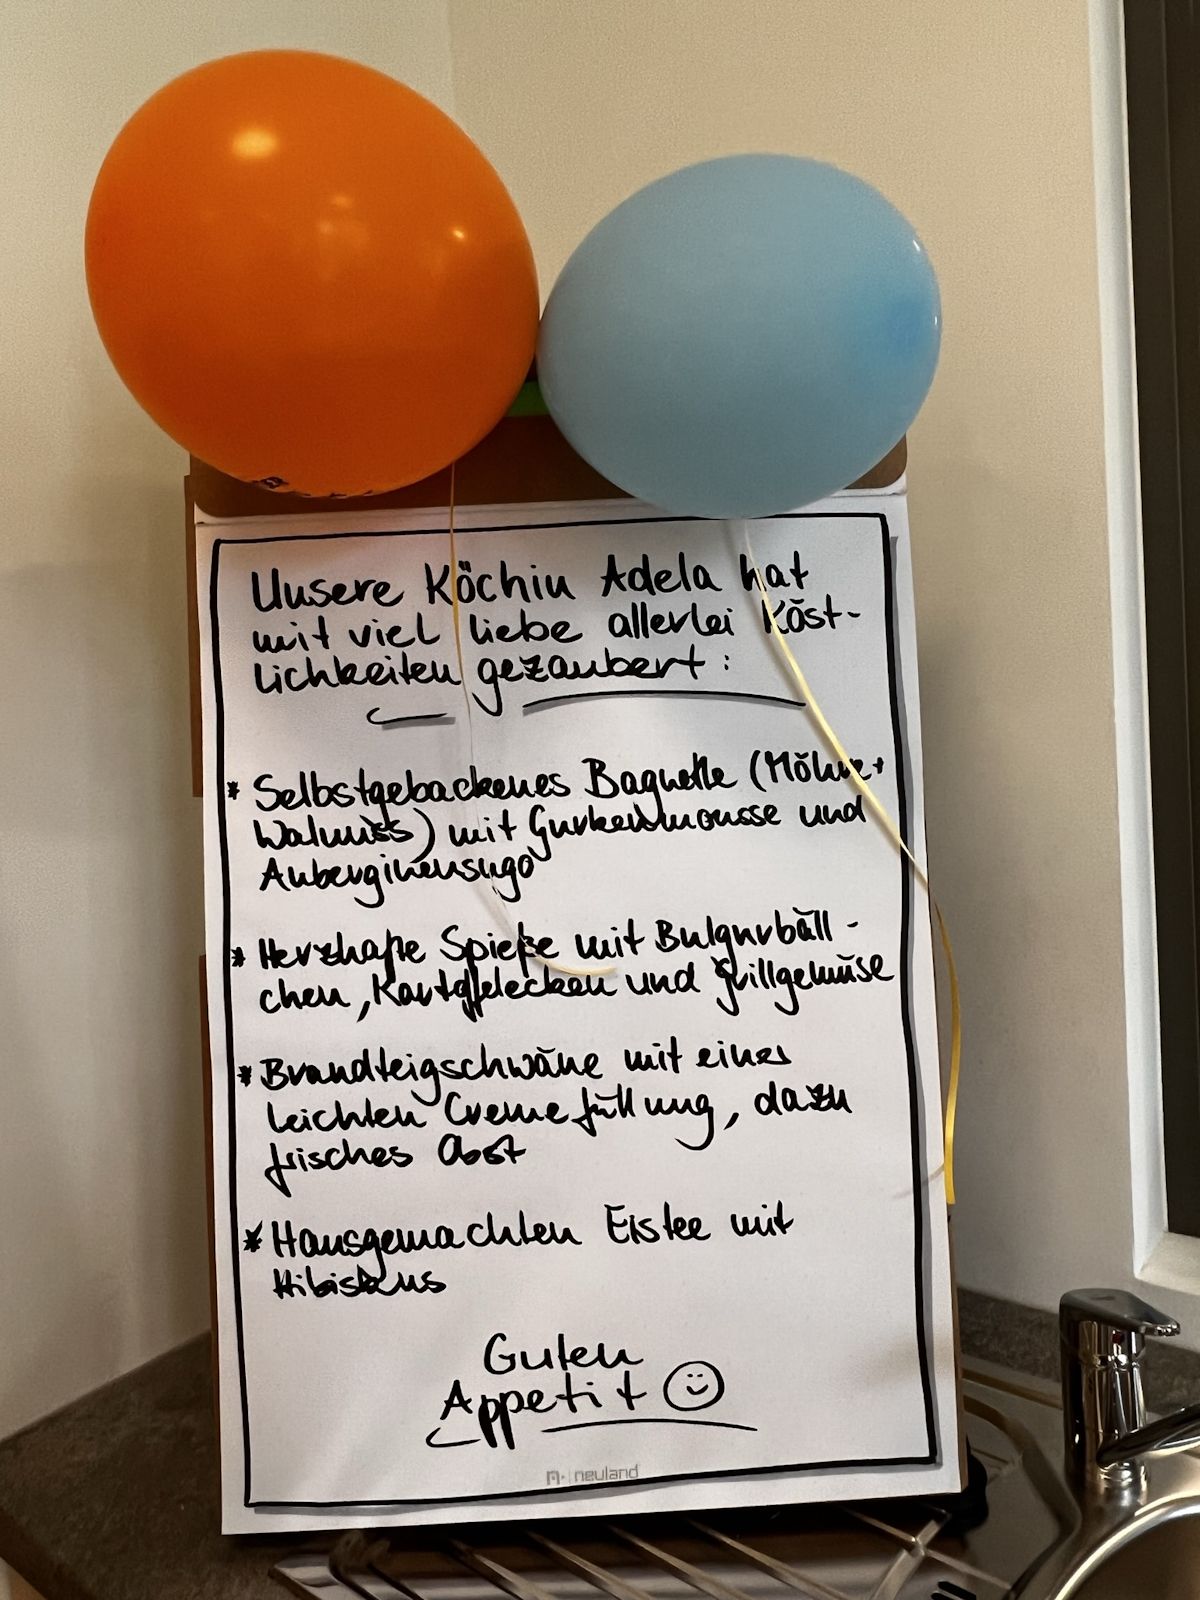 Unsere Köchin Adela hat
mit viel liebe allerlei Köst-
lichkeiten gezaubert:
* Selbstgebackenes Baguette (Möhre +
Walnuss) mit Gurkenmousse und
Auberginensugo
* Herzhafte Spieße mit Bulgurbäll-
chen, Kartoffelecken und Grillgemüse
* Brandteigschwäne mit einer
leichten Cremefüllung, dazu
frisches Obst
* Hausgemachten Eistee mit
Hibiskus
Guten
Appetit
neuland